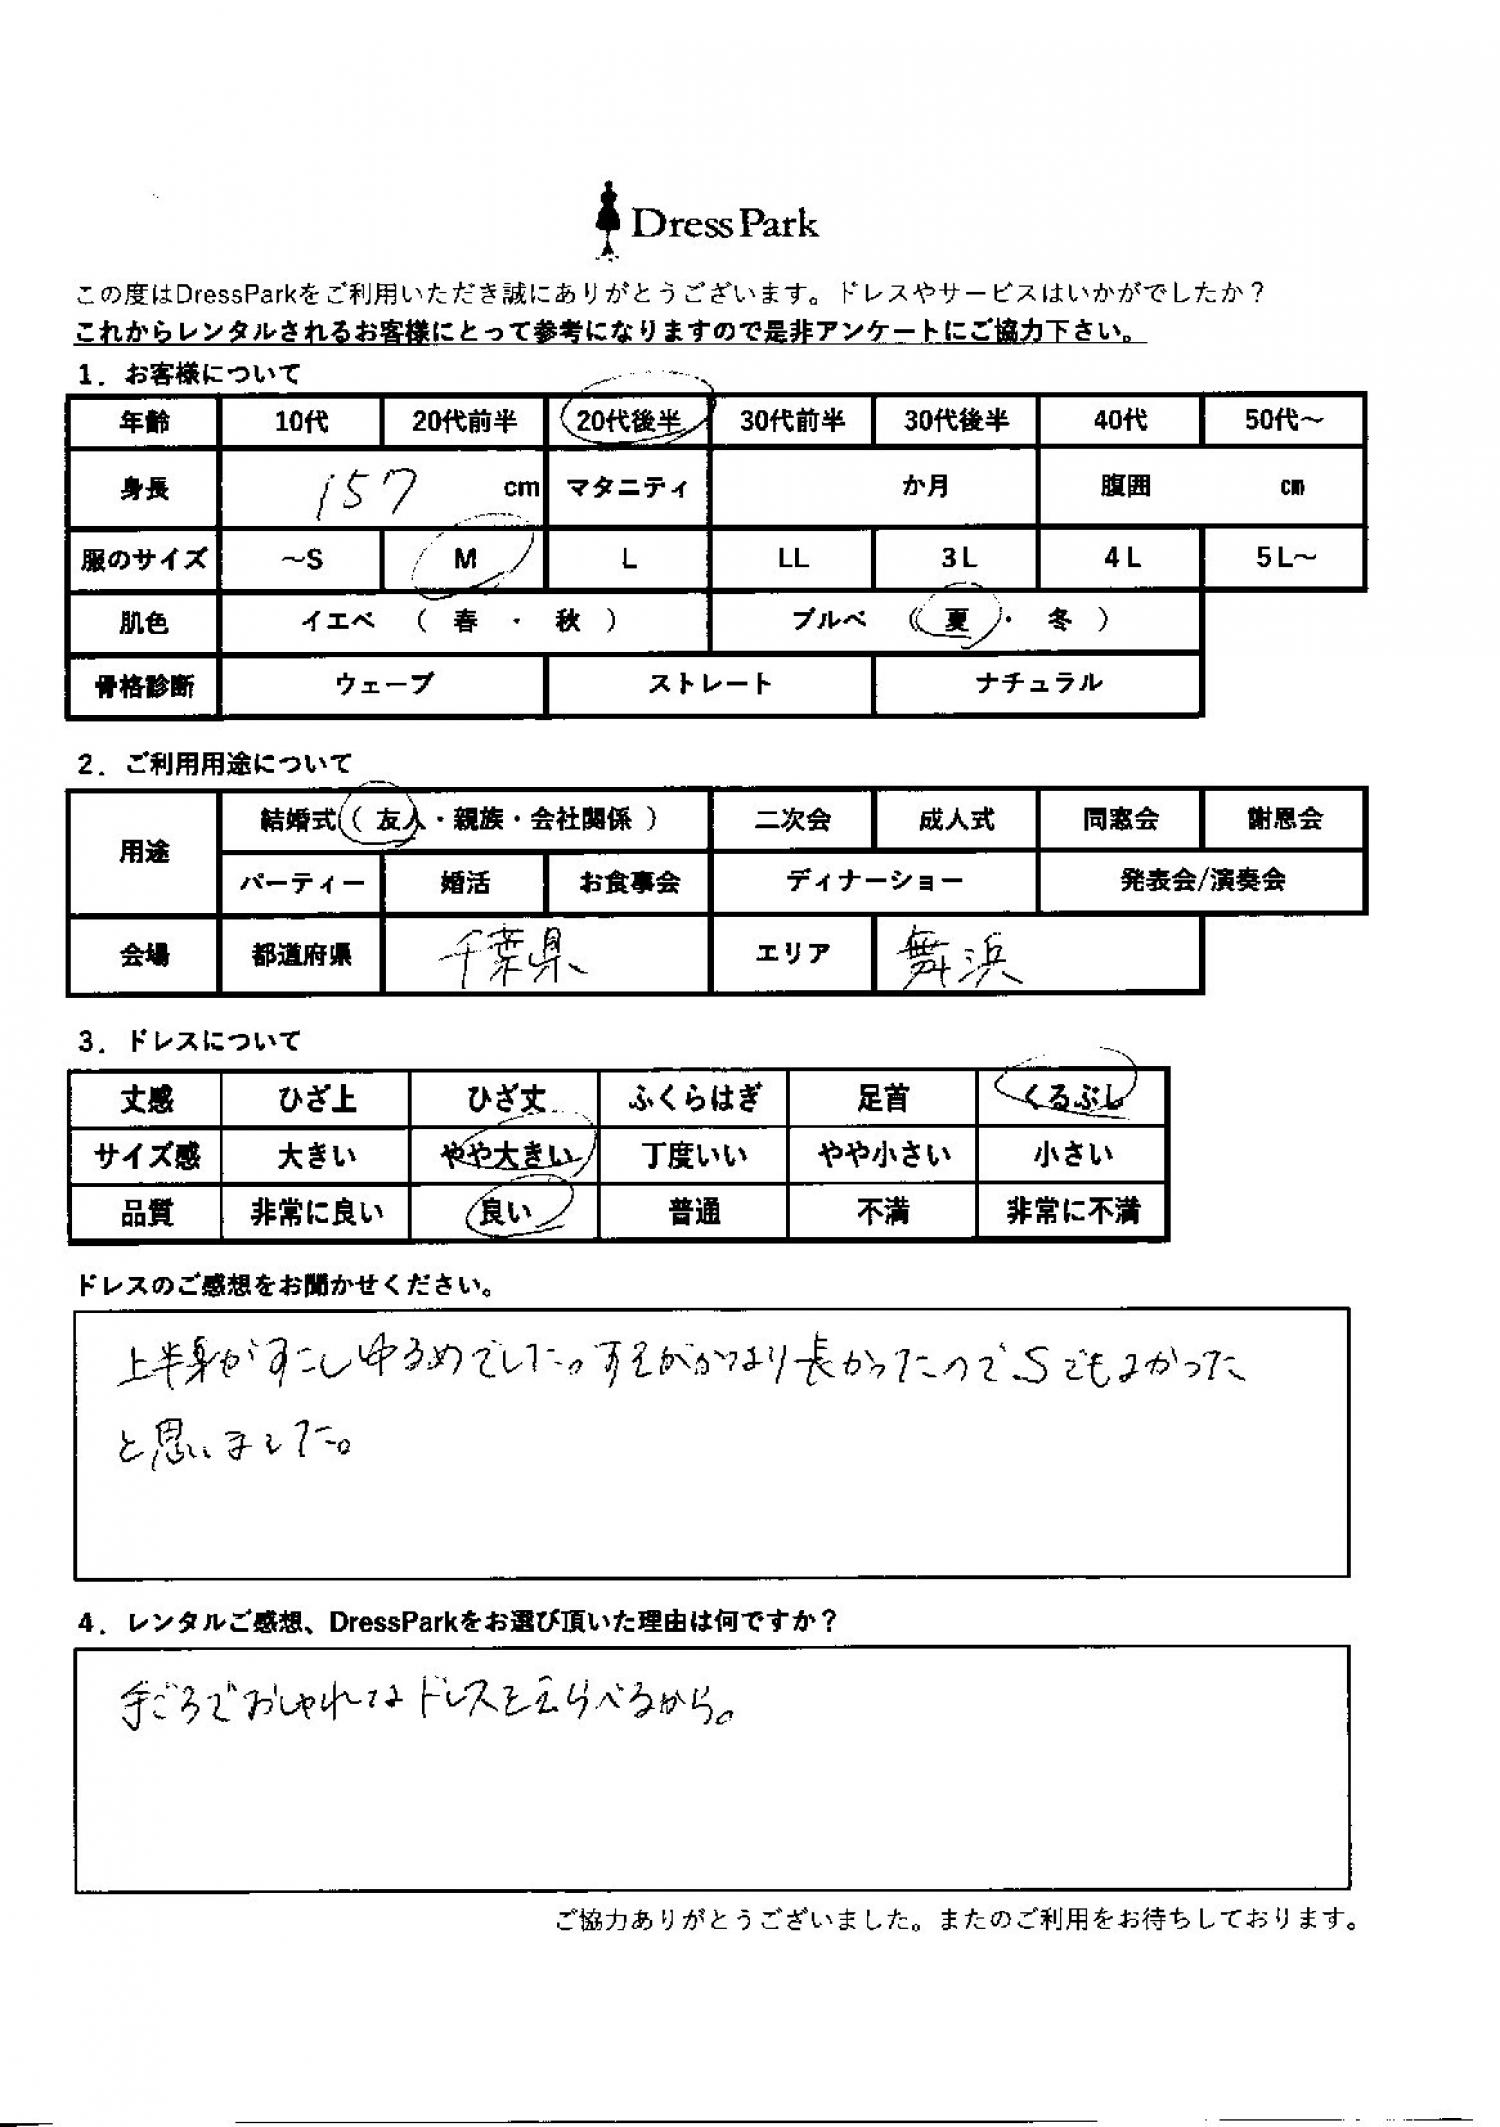 DressPark
この度はDressParkをご利用いただき誠にありがとうございます。ドレスやサービスはいかがでしたか？
これからレンタルされるお客様にとって参考になりますので是非アンケートにご協力下さい。
1．お客様について
年齢 10代 20代前半 20代後半 30代前半 30代後半 40代 50代～
身長 157 cm マタニティ か月 腹囲 cm
服のサイズ ～S M L LL 3L 4L 5L～
肌色 イエベ （ 春 ・ 秋 ） ブルベ （ 夏 ・ 冬 ）
骨格診断 ウェーブ ストレート ナチュラル
2．ご利用用途について
用途 結婚式（ 友人・親族・会社関係 ） 二次会 成人式 同窓会 謝恩会
パーティー 婚活 お食事会 ディナーショー 発表会/演奏会
会場 都道府県 千葉県 エリア 舞浜
3．ドレスについて
丈感 ひざ上 ひざ丈 ふくらはぎ 足首 くるぶし
サイズ感 大きい やや大きい 丁度いい やや小さい 小さい
品質 非常に良い 良い 普通 不満 非常に不満
ドレスのご感想をお聞かせください。
上半身がすこしゆるめでした。すそがかなり長かったのでSでもよかった
と思いました。
4．レンタルご感想、DressParkをお選び頂いた理由は何ですか？
手ごろでおしゃれなドレスをえらべるから。
ご協力ありがとうございました。またのご利用をお待ちしております。